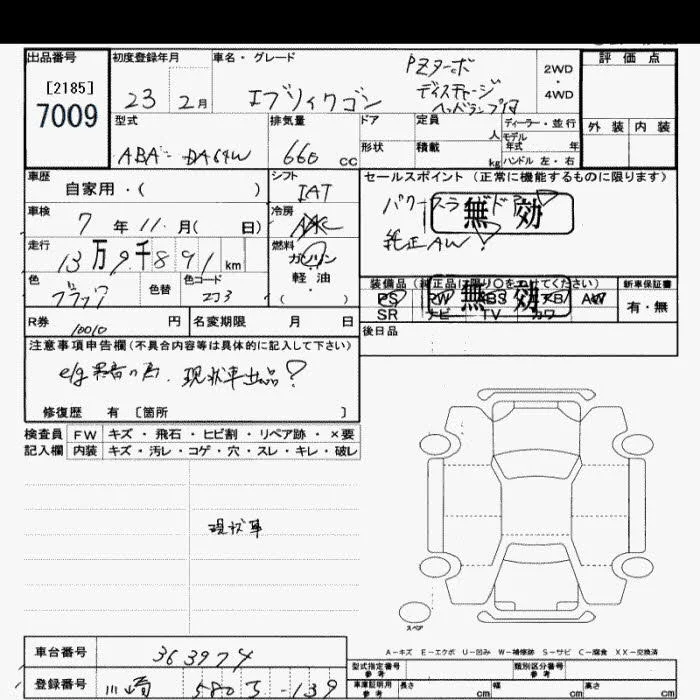 出品番号 初度登録年月 車名・グレード PZターボ 2WD 評価点
[2185] 7009 23 2月 エブリィワゴン ディスチャージ ・ 4WD
ヘッドランプ付
型式 排気量 ドア 定員 人 ディーラー・並行 外装 内装
モデル年式 年
ABA- DA64W 660 CC 形状 積載 kg ハンドル 左・右
車歴 自家用・( ) シフト IAT セールスポイント (正常に機能するものに限ります)
車検 7年 11月( 日) 冷房 AAC パワースラ ドドア
無効
純正AW
走行 13万9千891km 燃料 ガソリン・軽油
( )
色 ブラック 色替 色コード ZJ3 装備品 (純正品に限り○をつけてください) 新車保証書
PS PW ABS AB AW 有・無
無効
SR ナビ TV カワ
R券 10010 円 名変期限 月 日 後日品
注意事項申告欄(不具合内容等は具体的に記入して下さい)
e/g 異音の為、現状車出品
修復歴 有 [箇所 ]
検査員 FW キズ・飛石・ヒビ割・リペア跡・×要
記入欄 内装 キズ・汚レ・コゲ・穴・スレ・キレ・破レ
現状車
スペア
A-キズ E-エクボ U-凹み W-補修跡 S-サビ C-腐食 XX-交換済
車台番号 363974 型式指定番号 参考 類別区分番号 参考
登録番号 川崎 580 -139 車庫証明用 参考 長さ cm 幅 cm 高さ cm